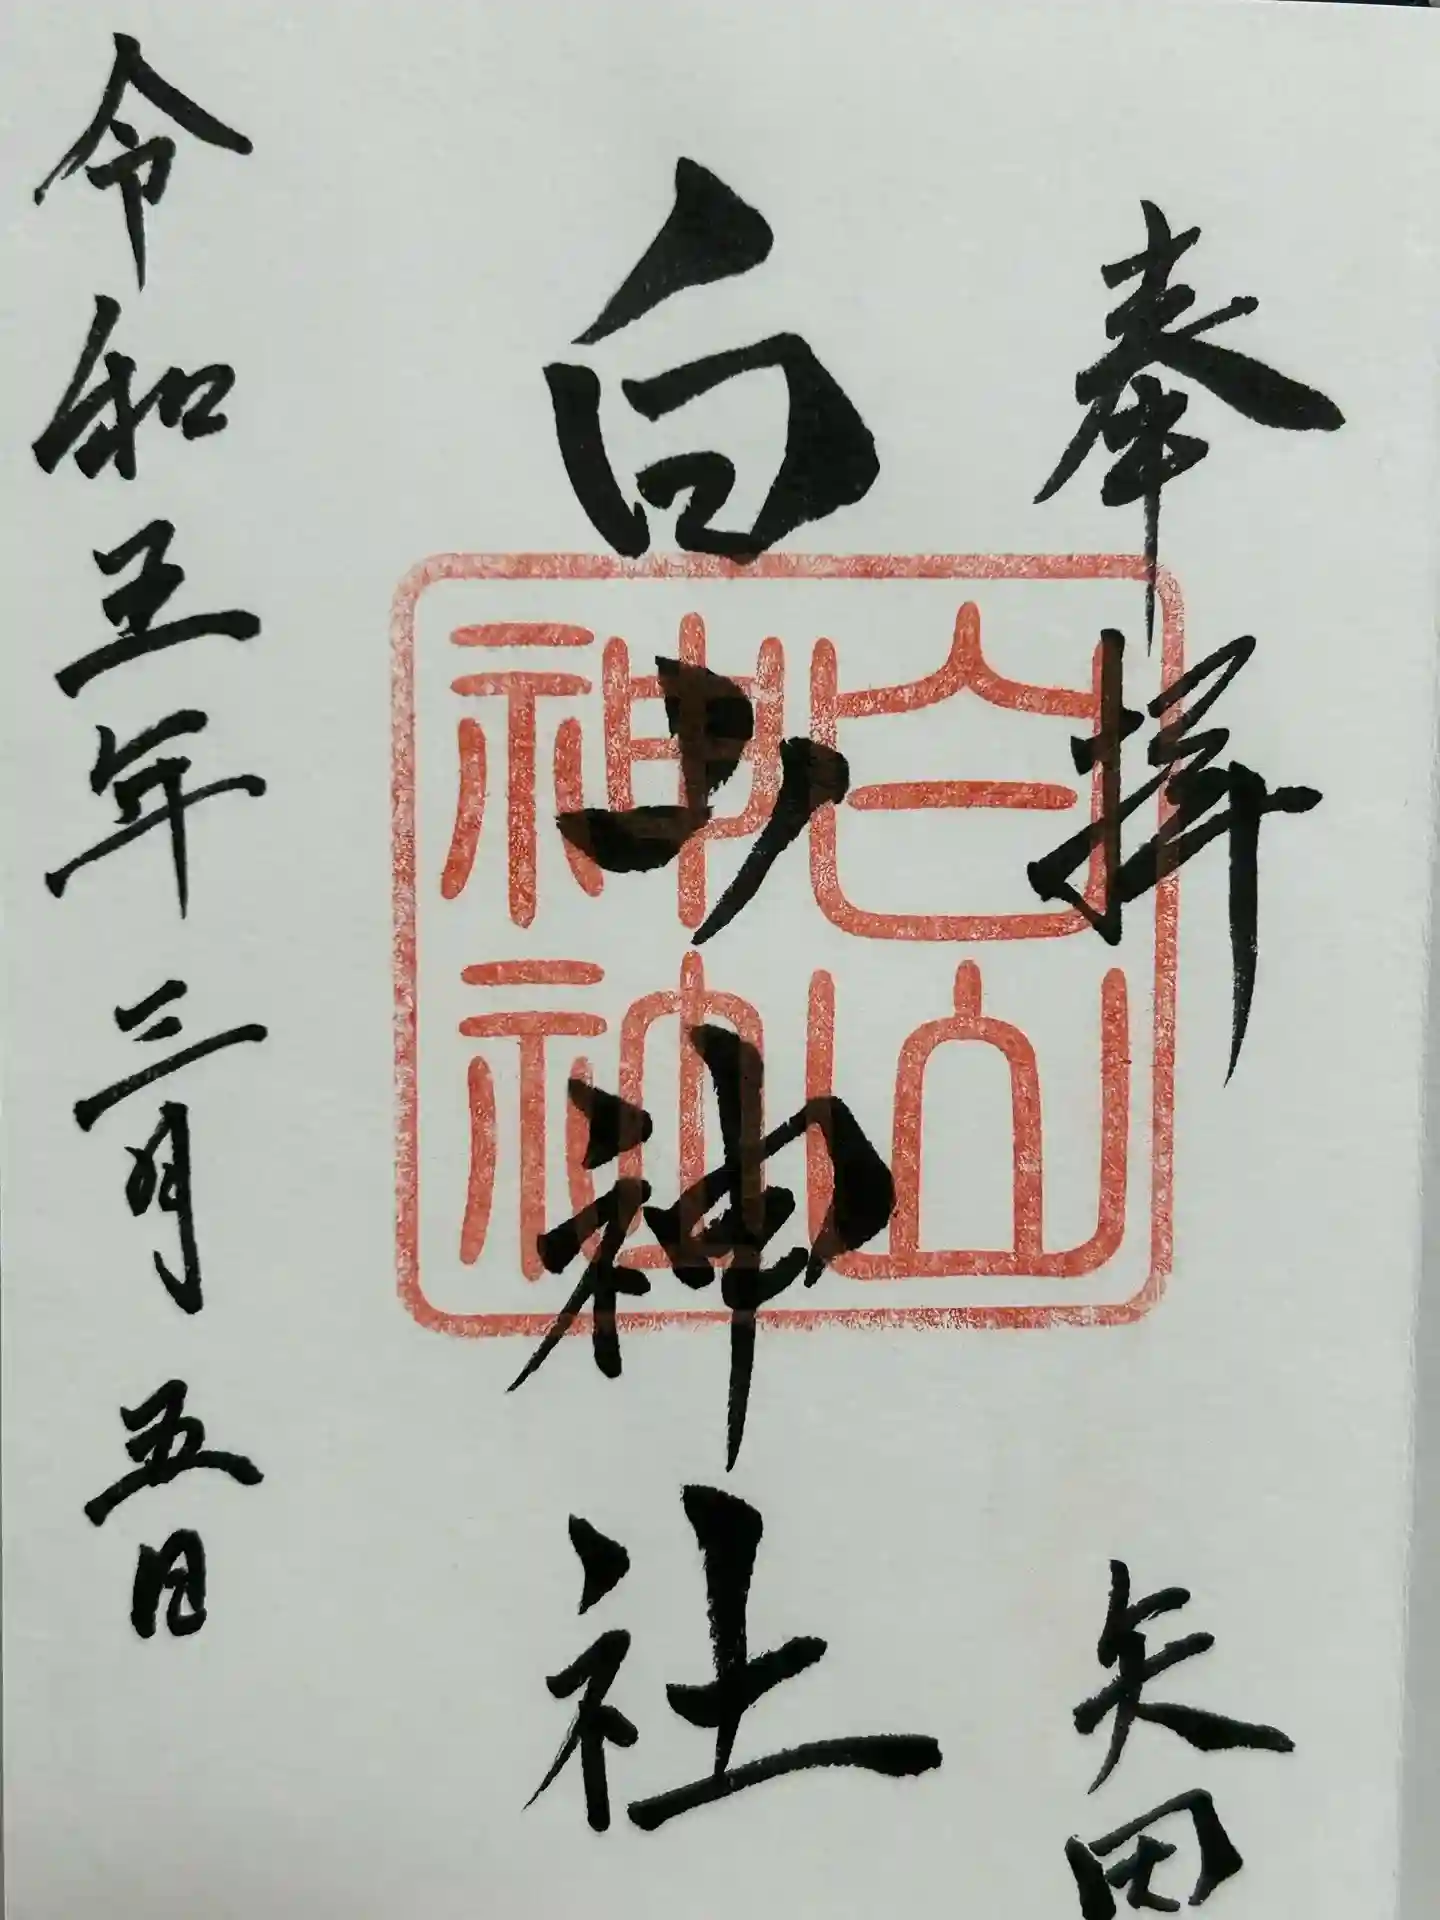 奉拝 矢田
白山神社
白山神社
令和五年三月五日